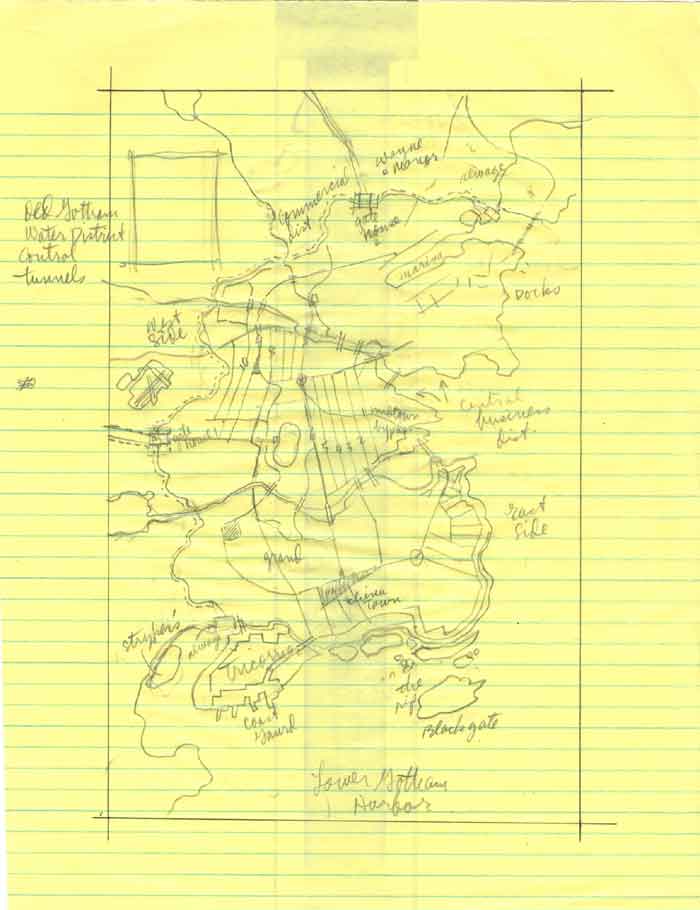 Wayne
Manor
Commercial
Dist
gate
house
Old Gotham
Water District
Control
tunnels
marina
Docks
West
Side
Central
business
Dist.
East
Side
grand
China
town
Stryker's
Tricorner
Coast
Guard
the
Blackgate
Lower Gotham
Harbor